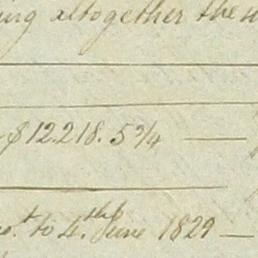 ing altogether the
$12.218.5¾
to 4th June 1829